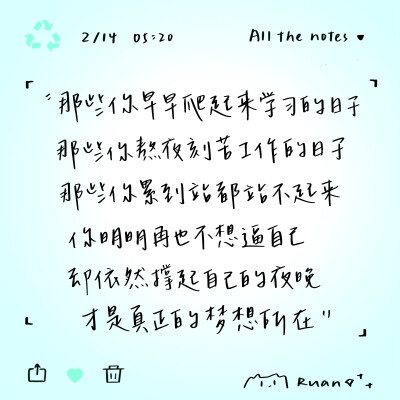 2/14 05:20 All the notes
"那些你早早爬起来学习的日子
那些你熬夜刻苦工作的日子
那些你累到站都站不起来
你明明再也不想逼自己
却依然撑起自己的夜晚
才是真正的梦想所在"
Ruan